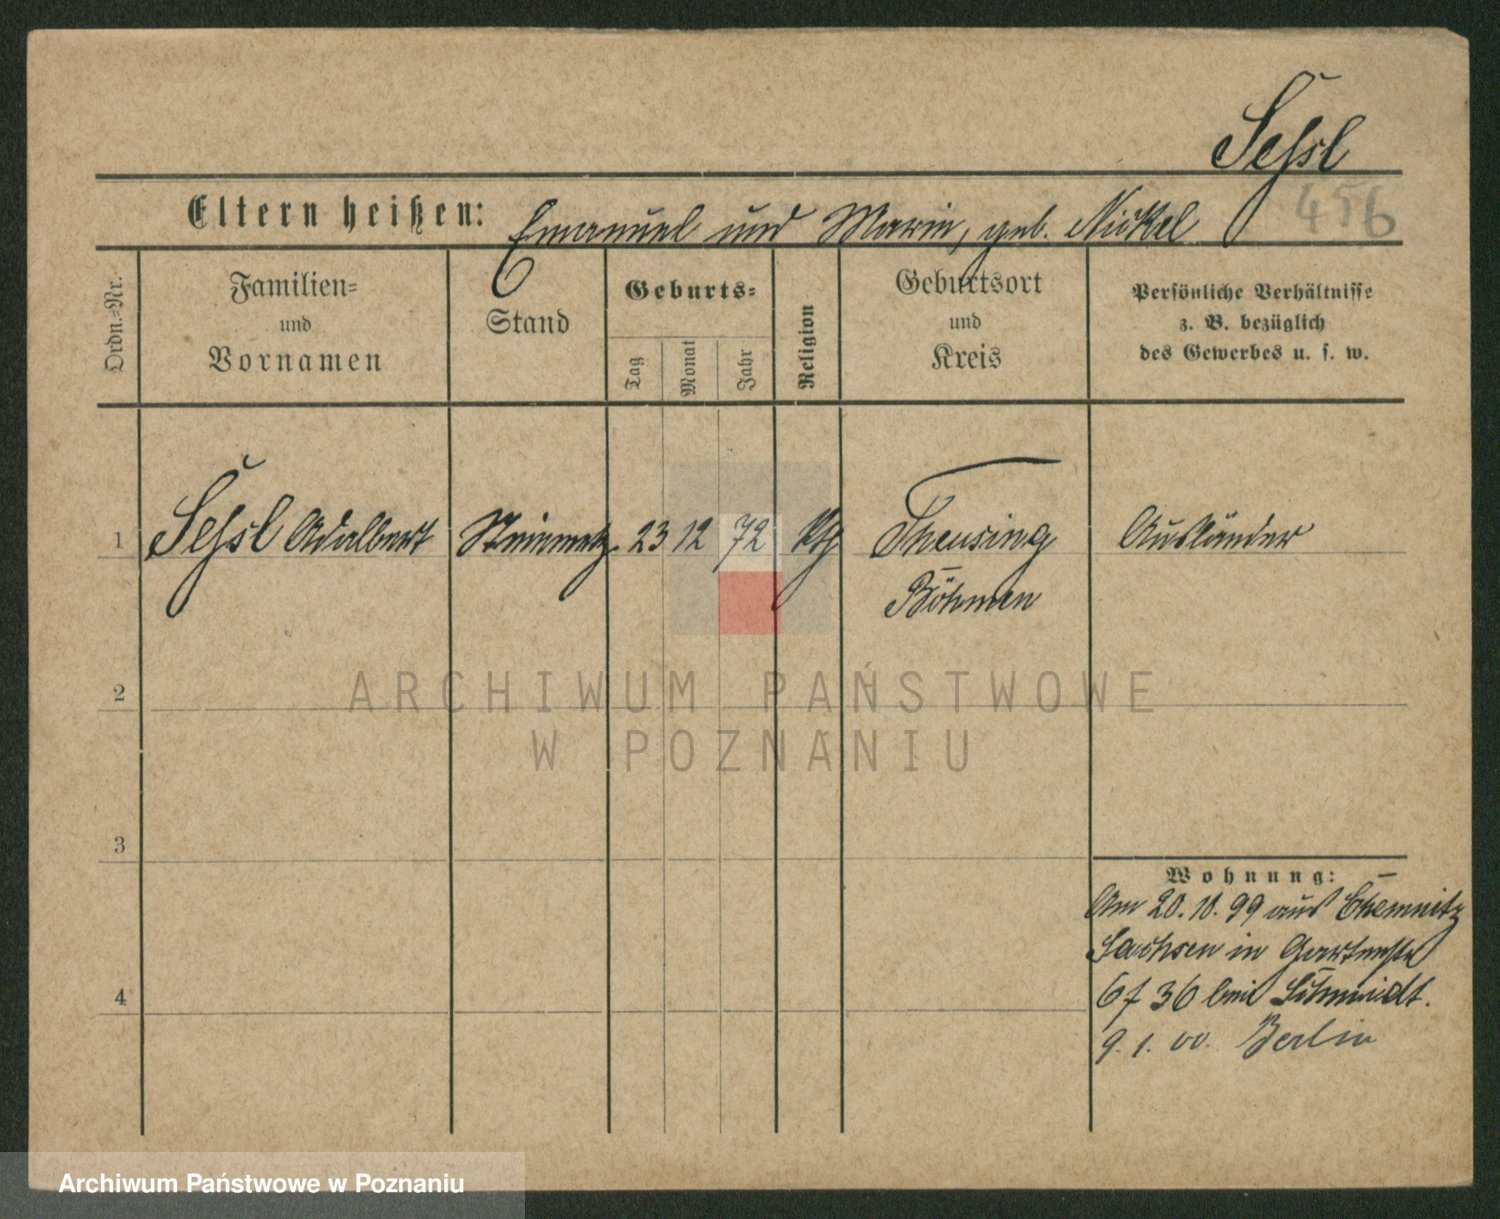 Sessl
456
Eltern heißen: Emanuel und Marie, geb. Nickel
Ordn.-Nr.
Familien-
und
Vornamen
Stand
Geburts-
Tag
Monat
Jahr
Religion
Geburtsort
und
Kreis
Persönliche Verhältnisse
z. B. bezüglich
des Gewerbes u. s. w.
1 Sessl Adalbert Steinmetz 23 12 72 kth Theusing Ausländer
Böhmen
2
ARCHIWUM PAŃSTWOWE
W POZNANIU
3
Wohnung:
Am 20. 11. 99 aus Chemnitz
Sachsen in Gartenstr
36 bei Schmidt.
9. 1. 00. Berlin
4
Archiwum Państwowe w Poznaniu